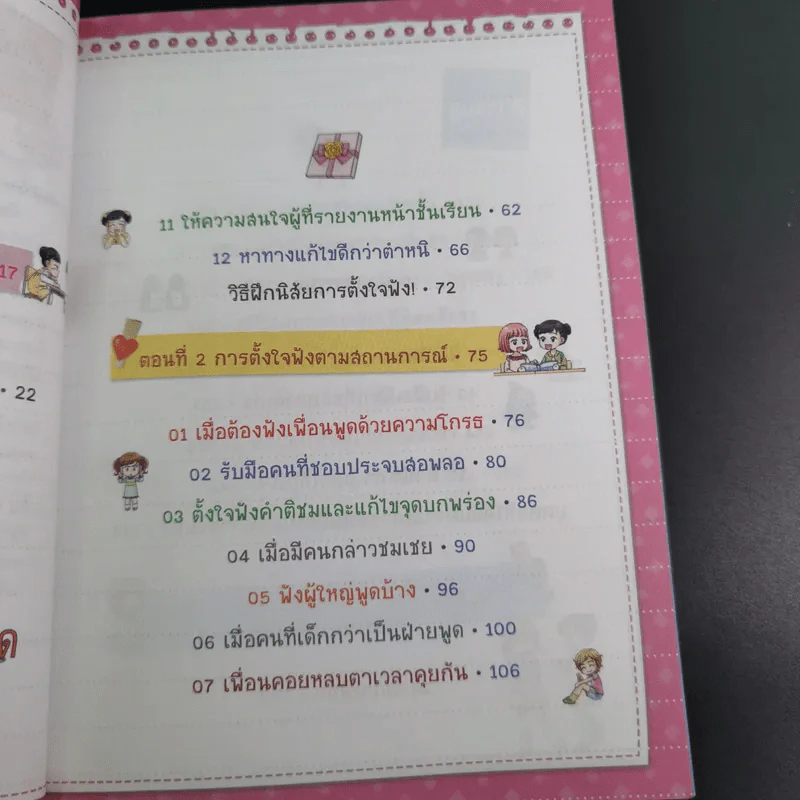 17
• 22
ด
11 ให้ความสนใจผู้ที่รายงานหน้าชั้นเรียน • 62
12 หาทางแก้ไขดีกว่าตำหนิ • 66
วิธีฝึกนิสัยการตั้งใจฟัง! • 72
ตอนที่ 2 การตั้งใจฟังตามสถานการณ์ • 75
01 เมื่อต้องฟังเพื่อนพูดด้วยความโกรธ • 76
02 รับมือคนที่ชอบประจบสอพลอ • 80
03 ตั้งใจฟังคำติชมและแก้ไขจุดบกพร่อง • 86
04 เมื่อมีคนกล่าวชมเชย • 90
05 ฟังผู้ใหญ่พูดบ้าง • 96
06 เมื่อคนที่เด็กกว่าเป็นฝ่ายพูด • 100
07 เพื่อนคอยหลบตาเวลาคุยกัน • 106